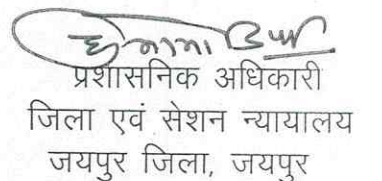 प्रशासनिक अधिकारी
जिला एवं सेशन न्यायालय
जयपुर जिला, जयपुर